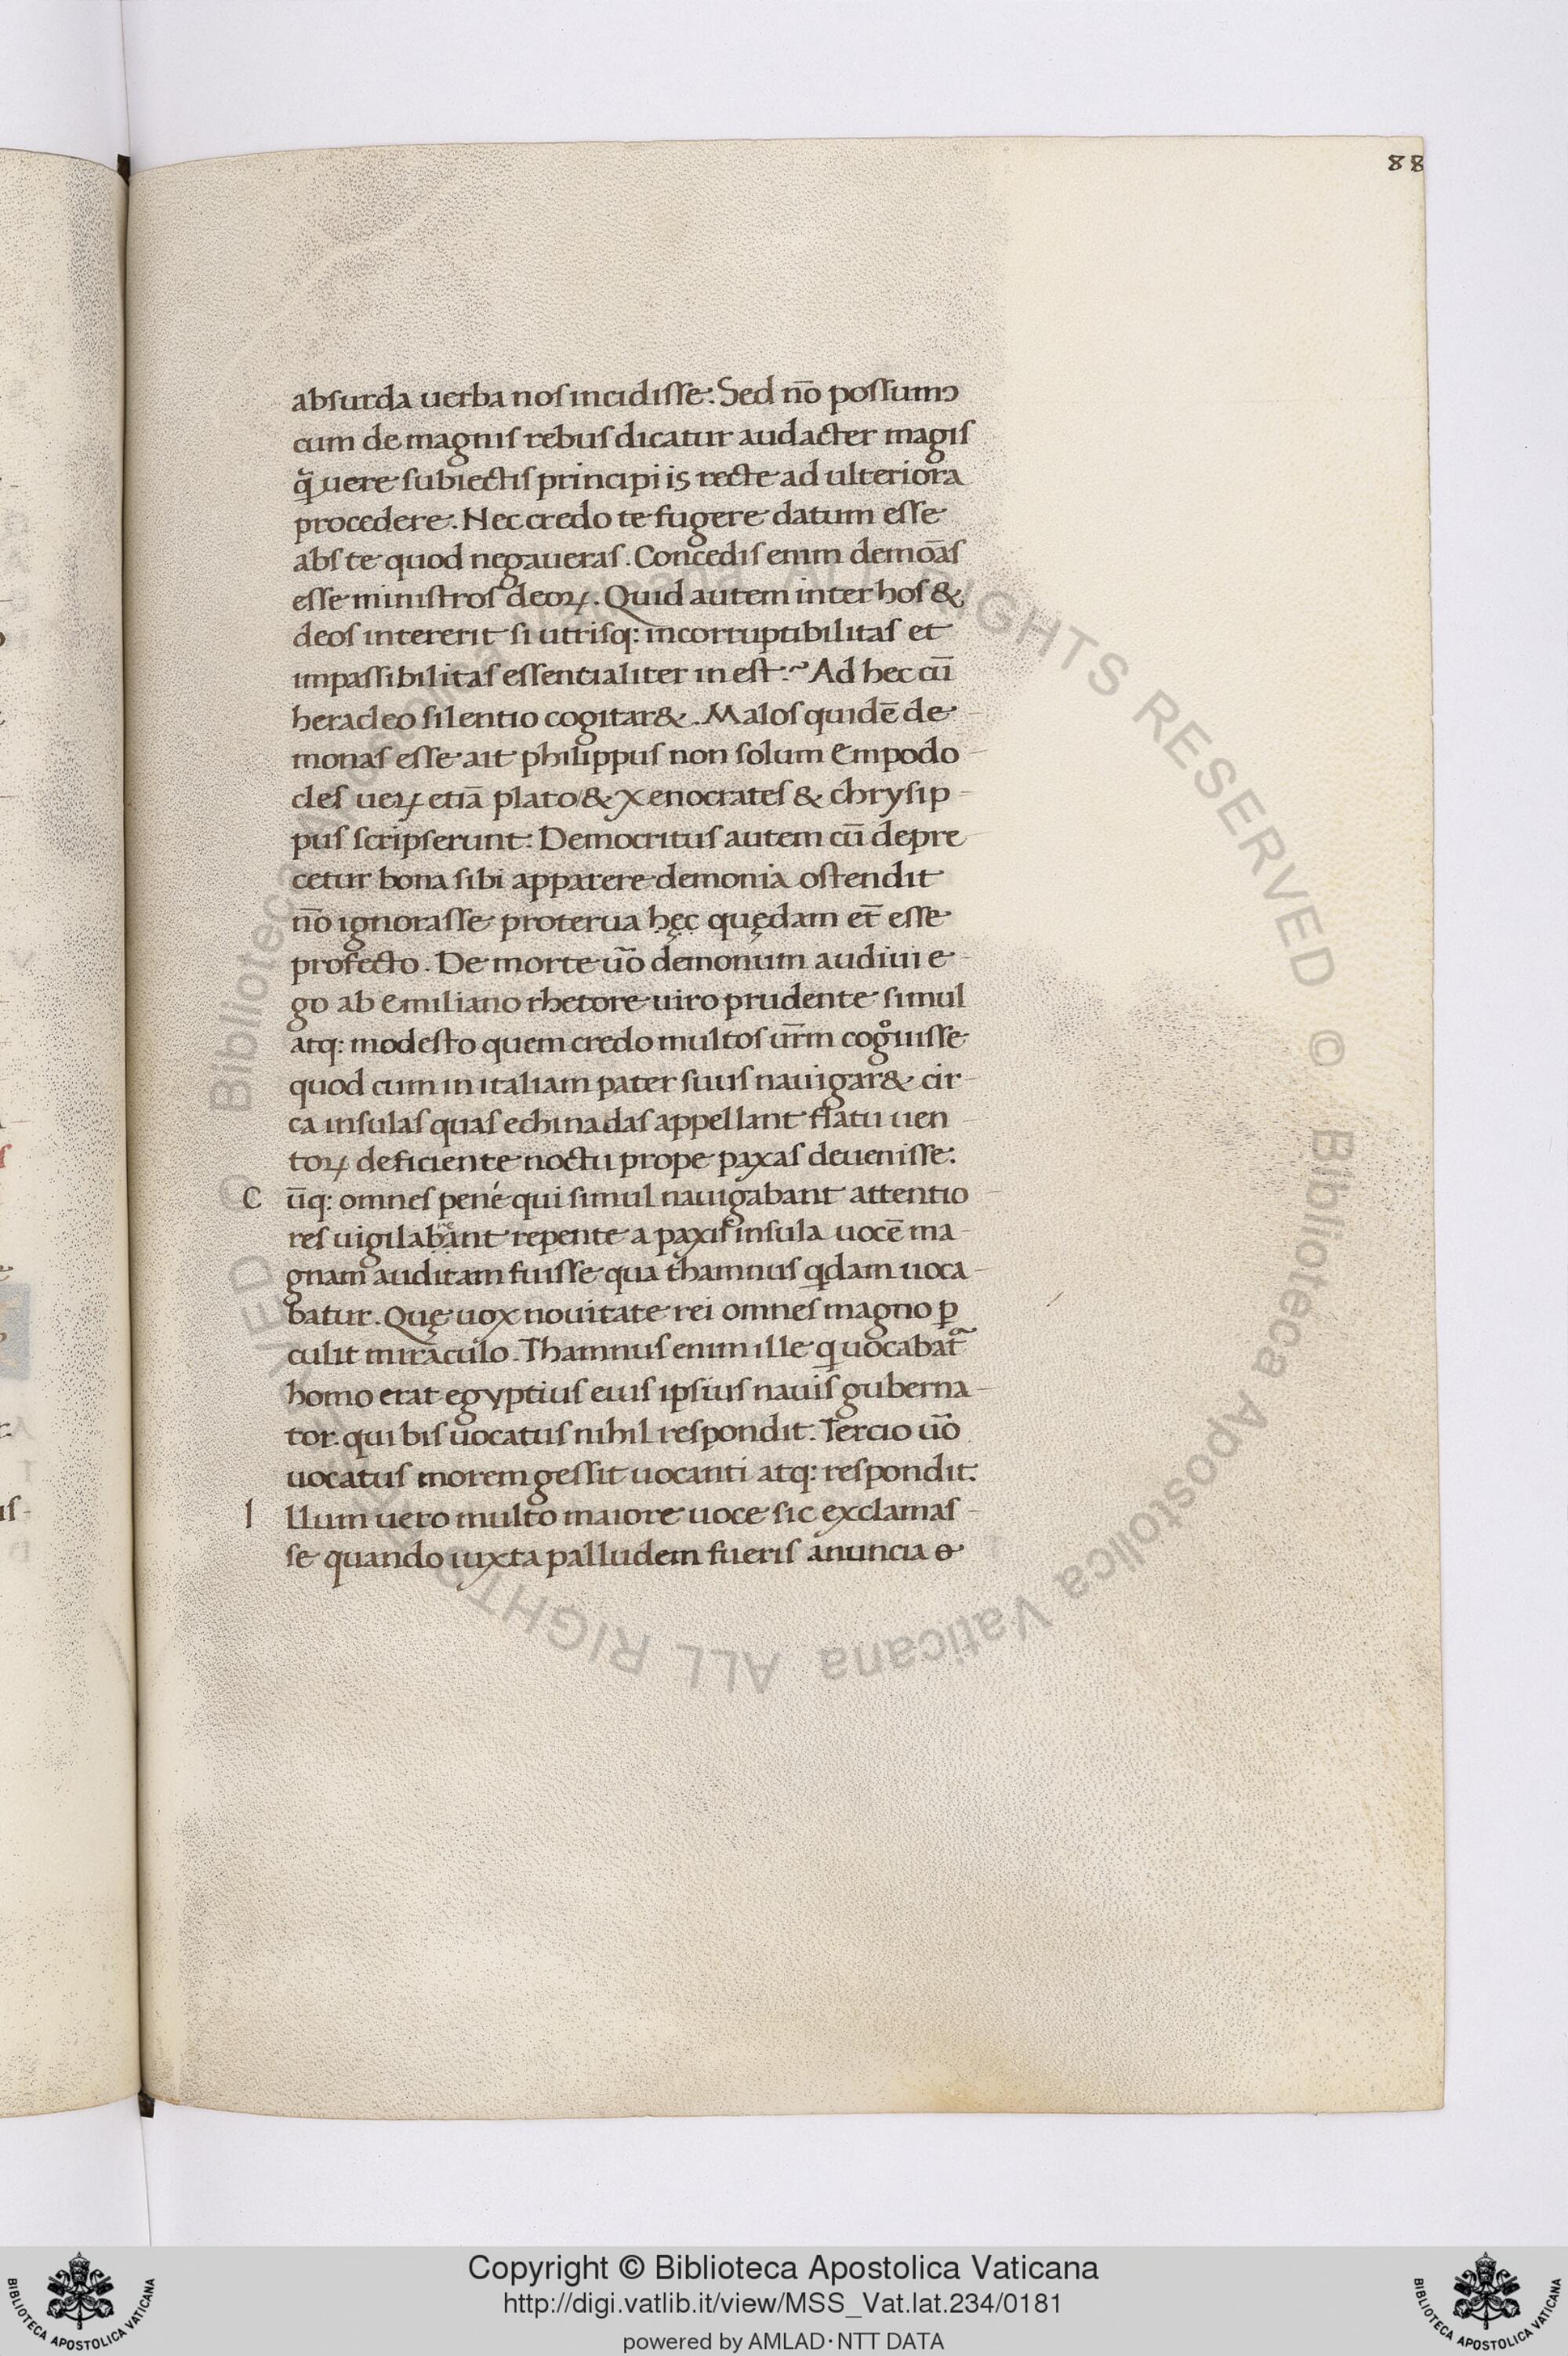 88
absurda uerba nos incidisse: Sed nō possumꝰ
cum de magnis rebus dicatur audacter magis
q̃ uere subiectis principiis recte ad ulteriora
procedere. Nec credo te fugere datum esse
abs te quod negaueras. Concedis enim demōas
esse ministros deoꝝ. Quid autem inter hos &
deos intererit si utrisq: incorruptibilitas et
impassibilitas essentialiter in est:~ Ad hec cū
heracleo silentio cogitar&. Malos quidē de-
monas esse ait philippus non solum Empodo-
cles ueꝝ etiā plato & Xenocrates & chrysip-
pus scripserunt: Democritus autem cū depre
cetur bona sibi apparere demonia ostendit
nō ignorasse proterua hęc quędam et̄ esse
profecto. De morte ūo demonum audiui e-
go ab Emiliano rhetore uiro prudente simul
atq: modesto quem credo multos ur̄m cogͦuisse
quod cum in italiam pater suus nauigar& cir-
ca insulas quas echinadas appellant flatu uen
toꝝ deficiente noctu prope paxas deuenisse:
C ūq: omnes pené qui simul nauigabant attentio
res uigilabant repente a paxis insula uocē ma-
gnam auditam fuisse qua thamnus q̇dam uoca-
batur. Quę uox nouitate rei omnes magno ꝑ
culit miraculo. Thamnus enim ille q̇ uocabat᷑
homo erat egyptius eius ipsius nauis guberna-
tor. qui bis uocatus nihil respondit: Tercio ūo
uocatus morem gessit uocanti atq: respondit:
I llum uero multo maiore uoce sic exclamas-
se quando iuxta palludem fueris anuncia e
Copyright © Biblioteca Apostolica Vaticana
http://digi.vatlib.it/view/MSS_Vat.lat.234/0181
powered by AMLAD·NTT DATA
BIBLIOTECA APOSTOLICA VATICANA
BIBLIOTECA APOSTOLICA VATICANA
© Biblioteca Apostolica Vaticana ALL RIGHTS RESERVED © Biblioteca Apostolica Vaticana ALL RIGHTS RESERVED